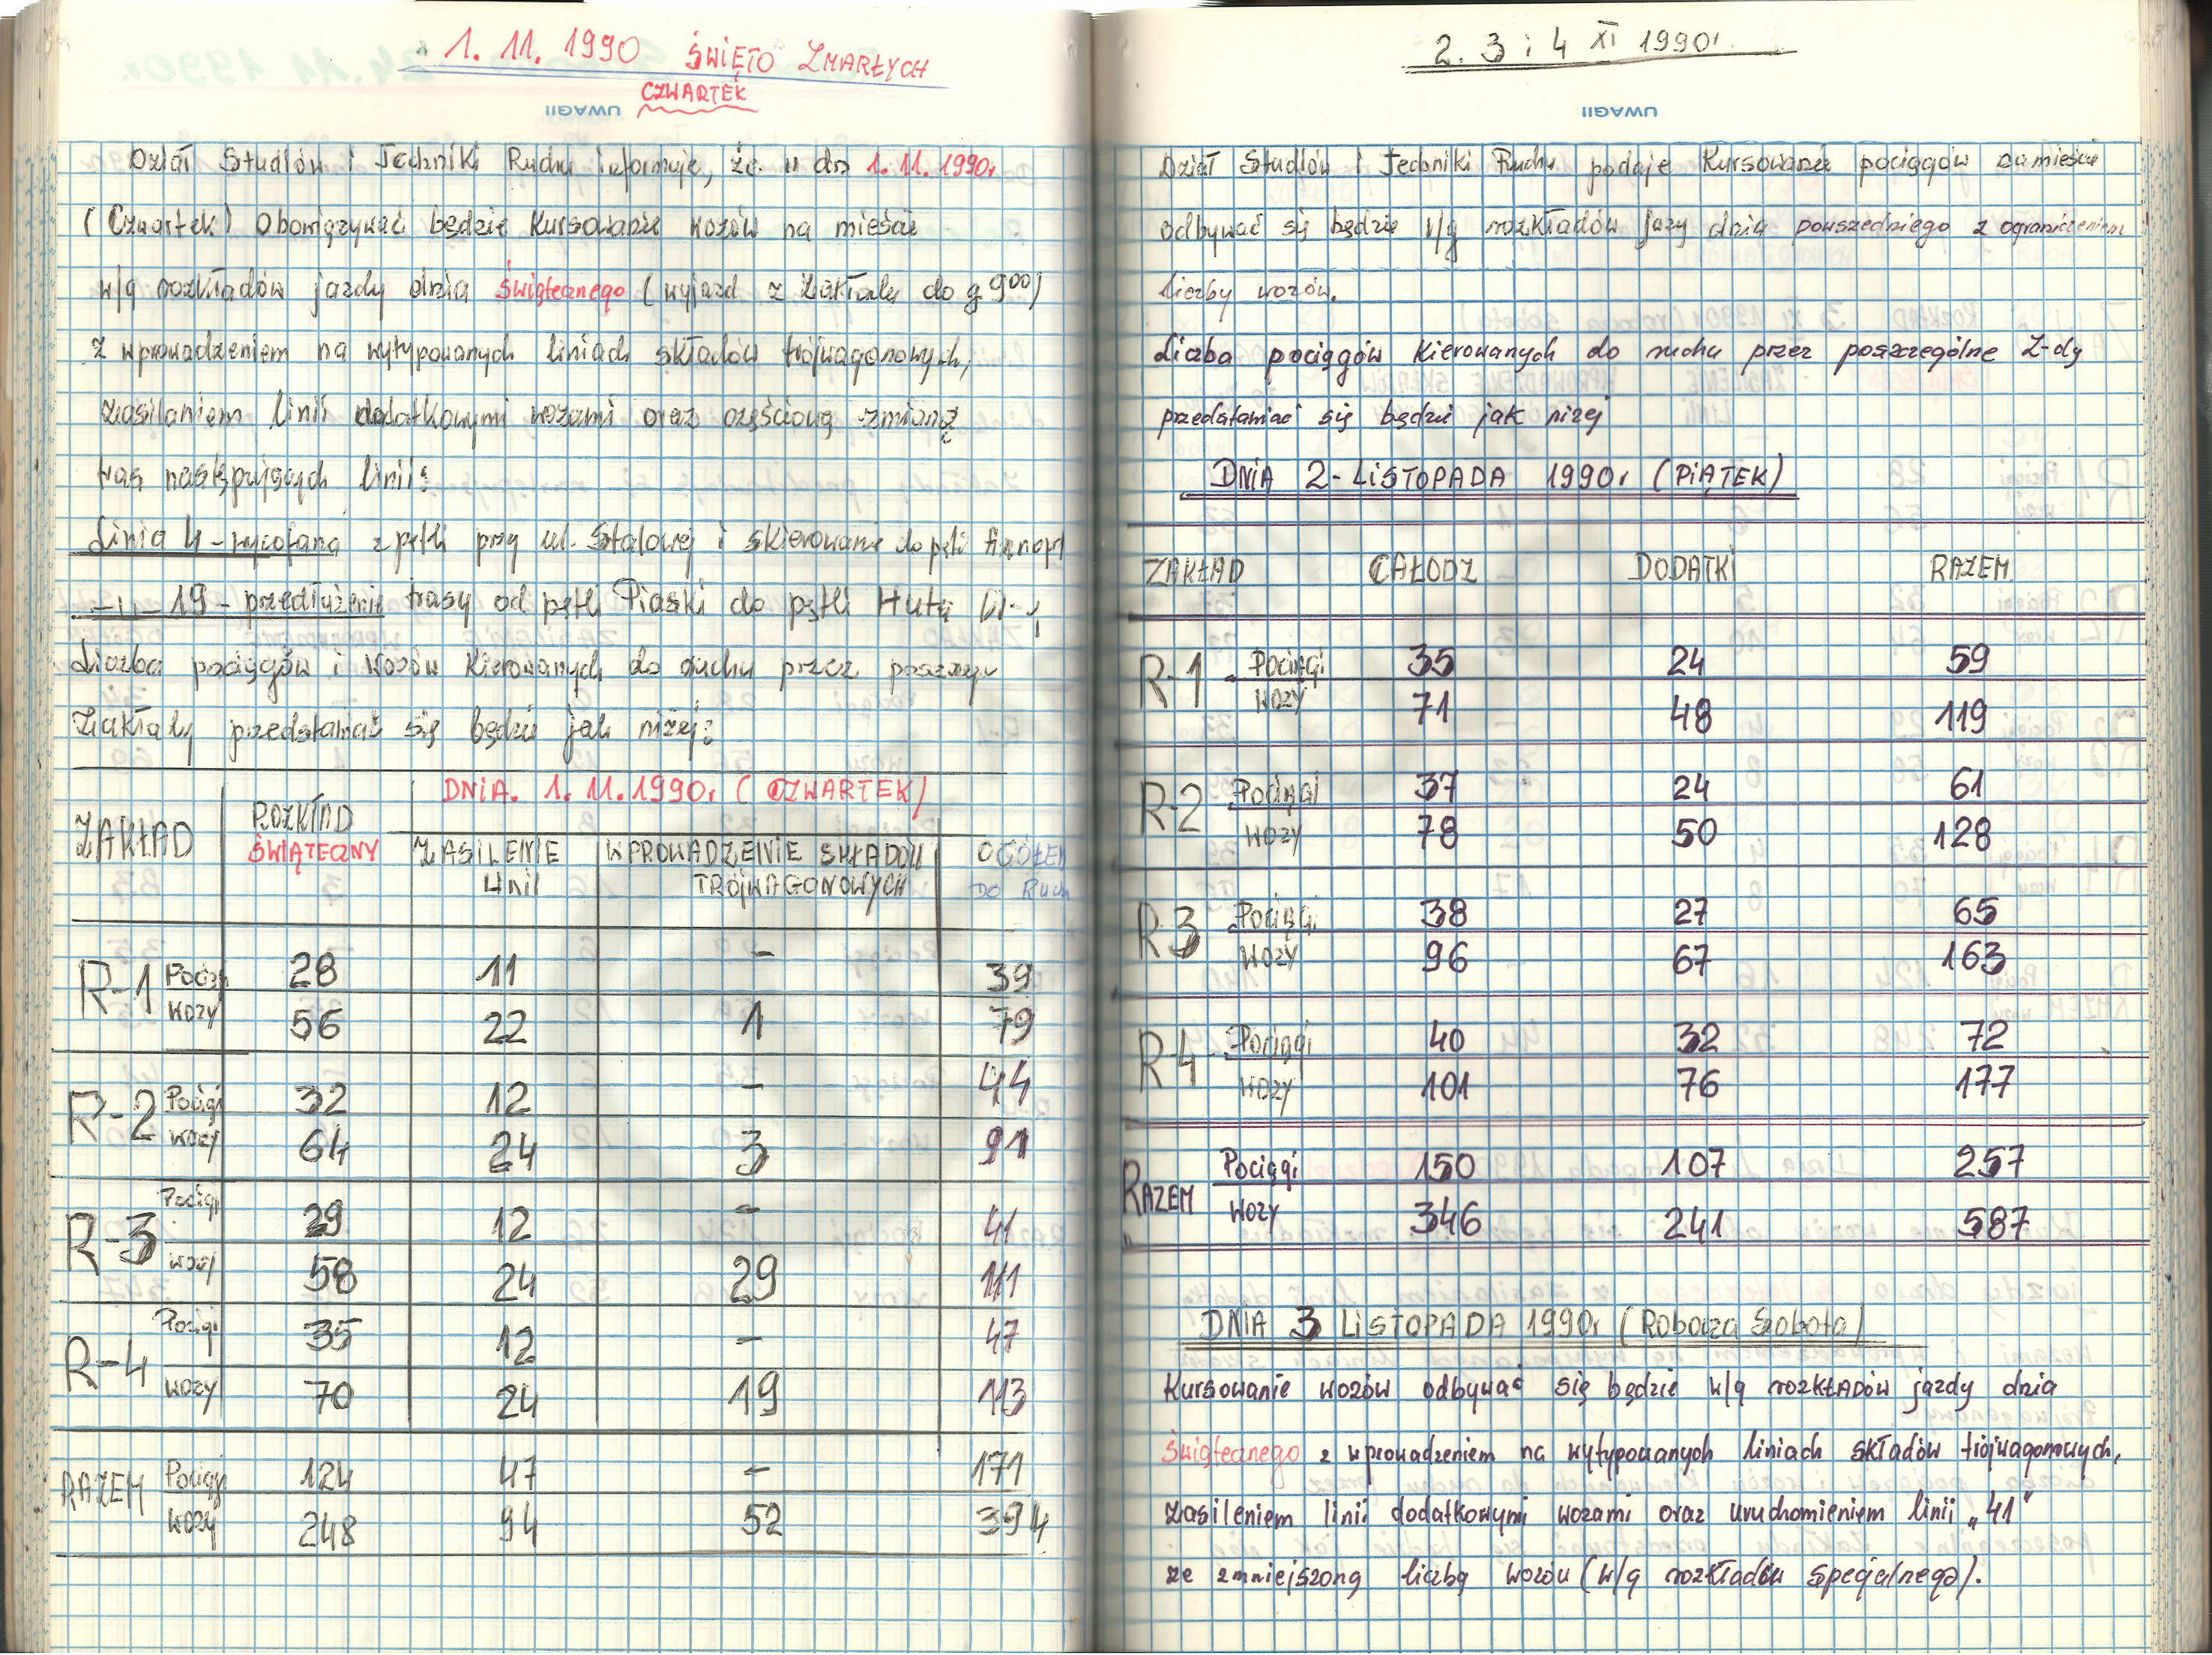 1. 11. 1990 ŚWIĘTO ZMARŁYCH
CZWARTEK
UWAGI!
Dział Studiów i Techniki Ruchu informuje, że w dn 1. 11. 1990r
(Czwartek) Obowiązywać będzie kursowanie wozów na mieście
w/g rozkładów jazdy dnia świątecznego (wyjazd z zakładu do g 9⁰⁰)
z wprowadzeniem na wytypowanych liniach składów trójwagonowych,
zasilaniem linii dodatkowymi wozami oraz częściową zmianą
tras następujących linii:
Linia 4 - wycofana z pętli przy ul. Stalowej i skierowanie do pętli Annopol
-„- 19 - przedłużenie trasy od pętli Piaski do pętli Huta
Liczba pociągów i wozów kierowanych do ruchu przez
Zakłady przedstawiać się będzie jak niżej:
ZAKŁAD ROZKŁAD ŚWIĄTECZNY DNIA. 1. 11. 1990r (CZWARTEK)
ZASILENIE LINII WPROWADZENIE SKŁADÓW TRÓJWAGONOWYCH OGÓŁEM DO Ruchu
R-1 Pociągi 28 11 - 39
Wozy 56 22 1 79
R-2 Pociągi 32 12 - 44
Wozy 64 24 3 91
R-3 Pociągi 29 12 - 41
Wozy 58 24 29 111
R-4 Pociągi 35 12 - 47
Wozy 70 24 19 113
RAZEM Pociągi 124 47 - 171
Wozy 248 94 52 394
2. 3 i 4 XI 1990r
UWAGI!
Dział Studiów i Techniki Ruchu podaje kursowanie pociągów na mieście
odbywać się będzie w/g rozkładów jazy dnia powszedniego z ograniczeniem
liczby wozów.
Liczba pociągów kierowanych do ruchu przez poszczególne Z-dy
przedstawiać się będzie jak niżej
DNIA 2-LISTOPADA 1990r (PIĄTEK)
ZAKŁAD CAŁODZ DODATKI RAZEM
R-1 Pociągi 35 24 59
Wozy 71 48 119
R-2 Pociągi 37 24 61
Wozy 78 50 128
R-3 Pociągi 38 27 65
Wozy 96 67 163
R-4 Pociągi 40 32 72
Wozy 101 76 177
RAZEM Pociągi 150 107 257
Wozy 346 241 587
DNIA 3 LISTOPADA 1990r (Robocza Sobota)
Kursowanie wozów odbywać się będzie w/g rozkładów jazdy dnia
świątecznego z wprowadzeniem na wytypowanych liniach składów trójwagonowych,
zasileniem linii dodatkowymi wozami oraz uruchomieniem linii „41"
ze zmniejszoną liczbą wozów (w/g rozkładów specjalnego).